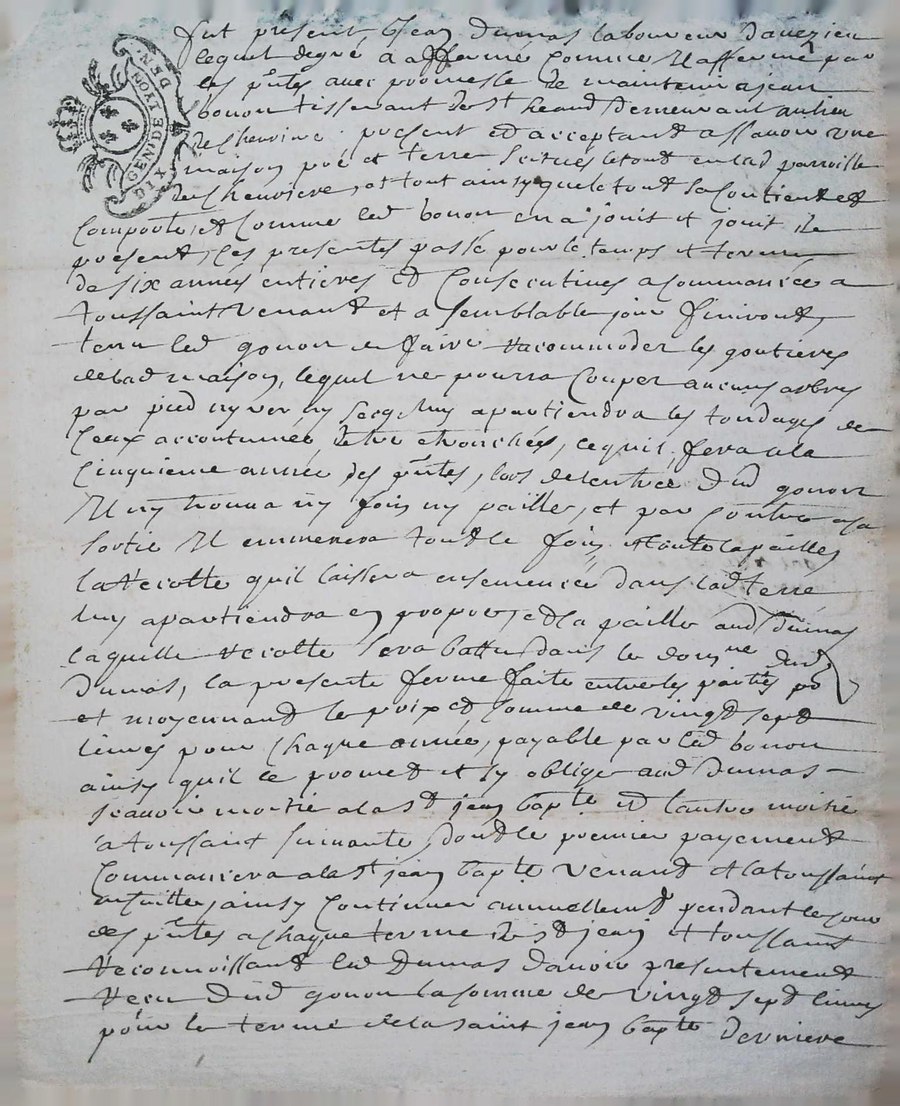 GENE.DE LYON
DIX DEN.
fut present Jean Dumas laboureur davezieu
lequel degré a affermé comme Il afferme par
les pntes avec promesse de maintenir a jean
bonon tisserant de st heand demeurant au lieu
de chevrine present et acceptant assavoir une
maison pré et terre scitués le tout en lad parroisse
de Chevriere, et tout ainsy que le tout sa Contient et
Comporte, et Comme led bonon en a jouit et jouit de
present, les presentes passé pour le temps et terme
de six années entieres et Consecutives a commancer a
toussaint venant et a semblable jour finiront,
tenu led gonon de faire racommoder les goutieres
de lad maison, lequel ne pourra Couper aucuns arbres
par pied ny ver ny secq luy apartiendra les tondages de
Ceux accoutumés detre ebronchés, ce quil fera a la
Cinquieme année des pntes, lors de lentrée dud gonon
Il ny trouva ny foin ny paille, et par Contre a sa
sortie Il emmenera tout le foin et toute la paille
la Recolte quil laissera ensemencée dans lad terre
luy apartiendra en propre, et la paille aud Dumas
laquelle recolte sera battu dans le domne dud
Dumas, la presente ferme faite entre les parties po
et moyennand le prix et somme de vingt sept
livres pour Chaque année, payable par led bonon
ainsy quil le promet et sy oblige aud Dumas
scavoir moitié a la st jean bapte et lautre moitié
a toussaint suivante, dont le premier payement
Commancera a la st jean bapte venant et la toussaint
ensuitte, ainsy Continuer annuellemt pendant le cour
des pntes a chaque terme de st jean et toussaint
Reconnoissant led Dumas davoir presentement
Receu dud gonon la somme de vingt sept livres
pour le terme de la saint jean bapte derniere